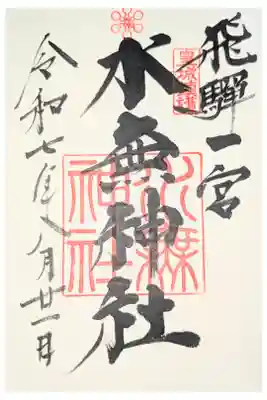 飛驒一宮
水無神社
水無神社
令和七年八月廿一日